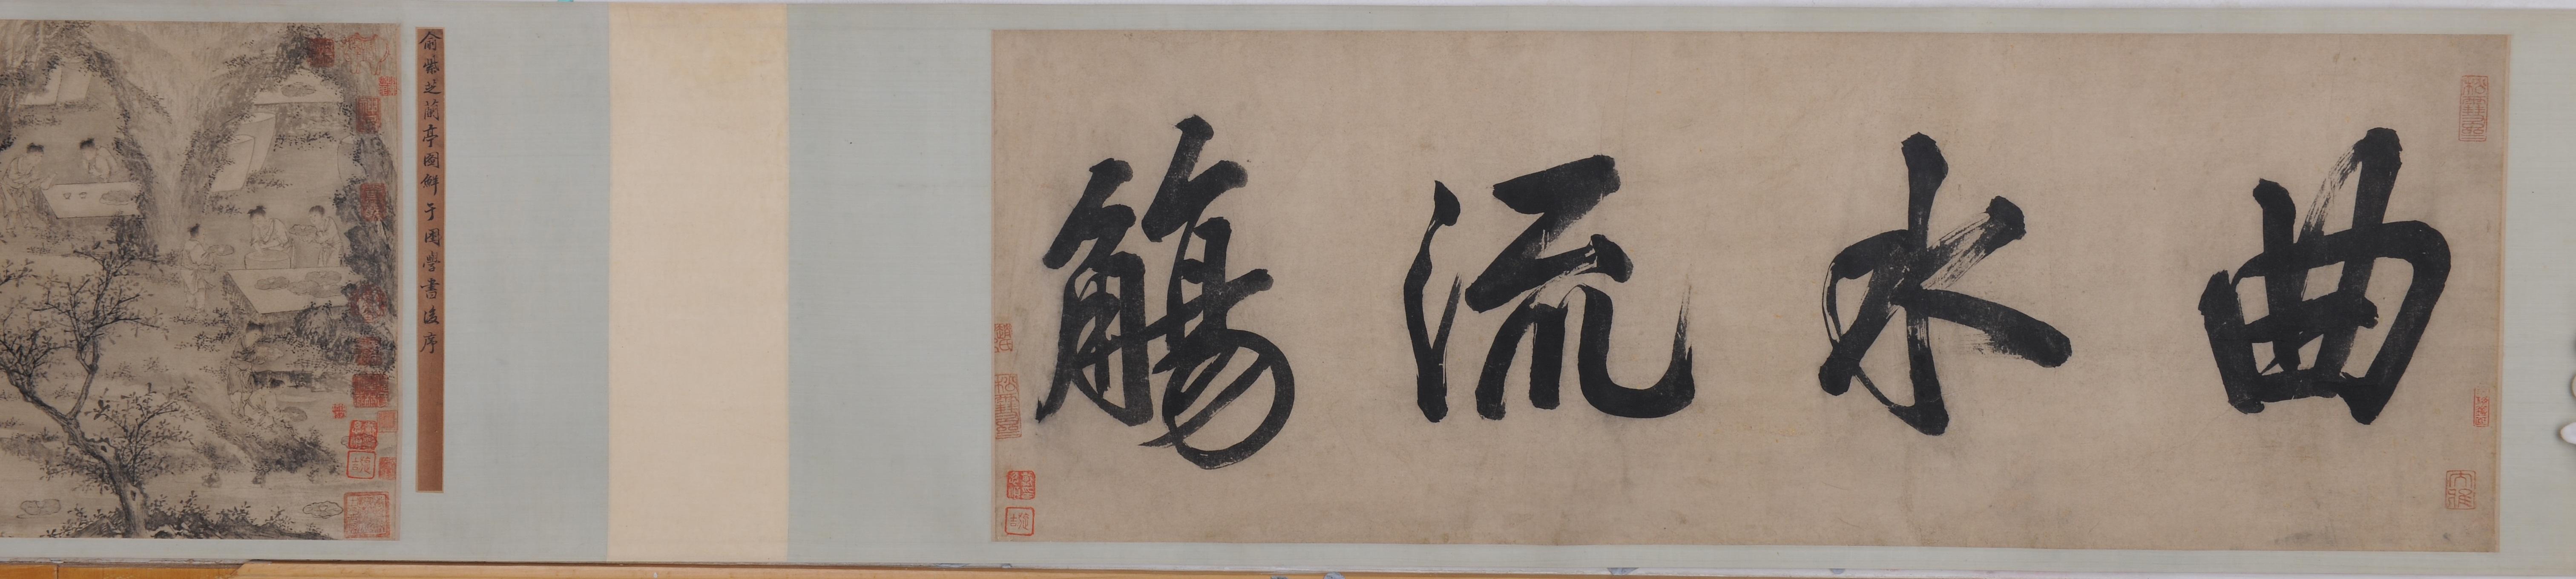 曲水流觴
俞紫芝蘭亭圖鮮于困學書後序